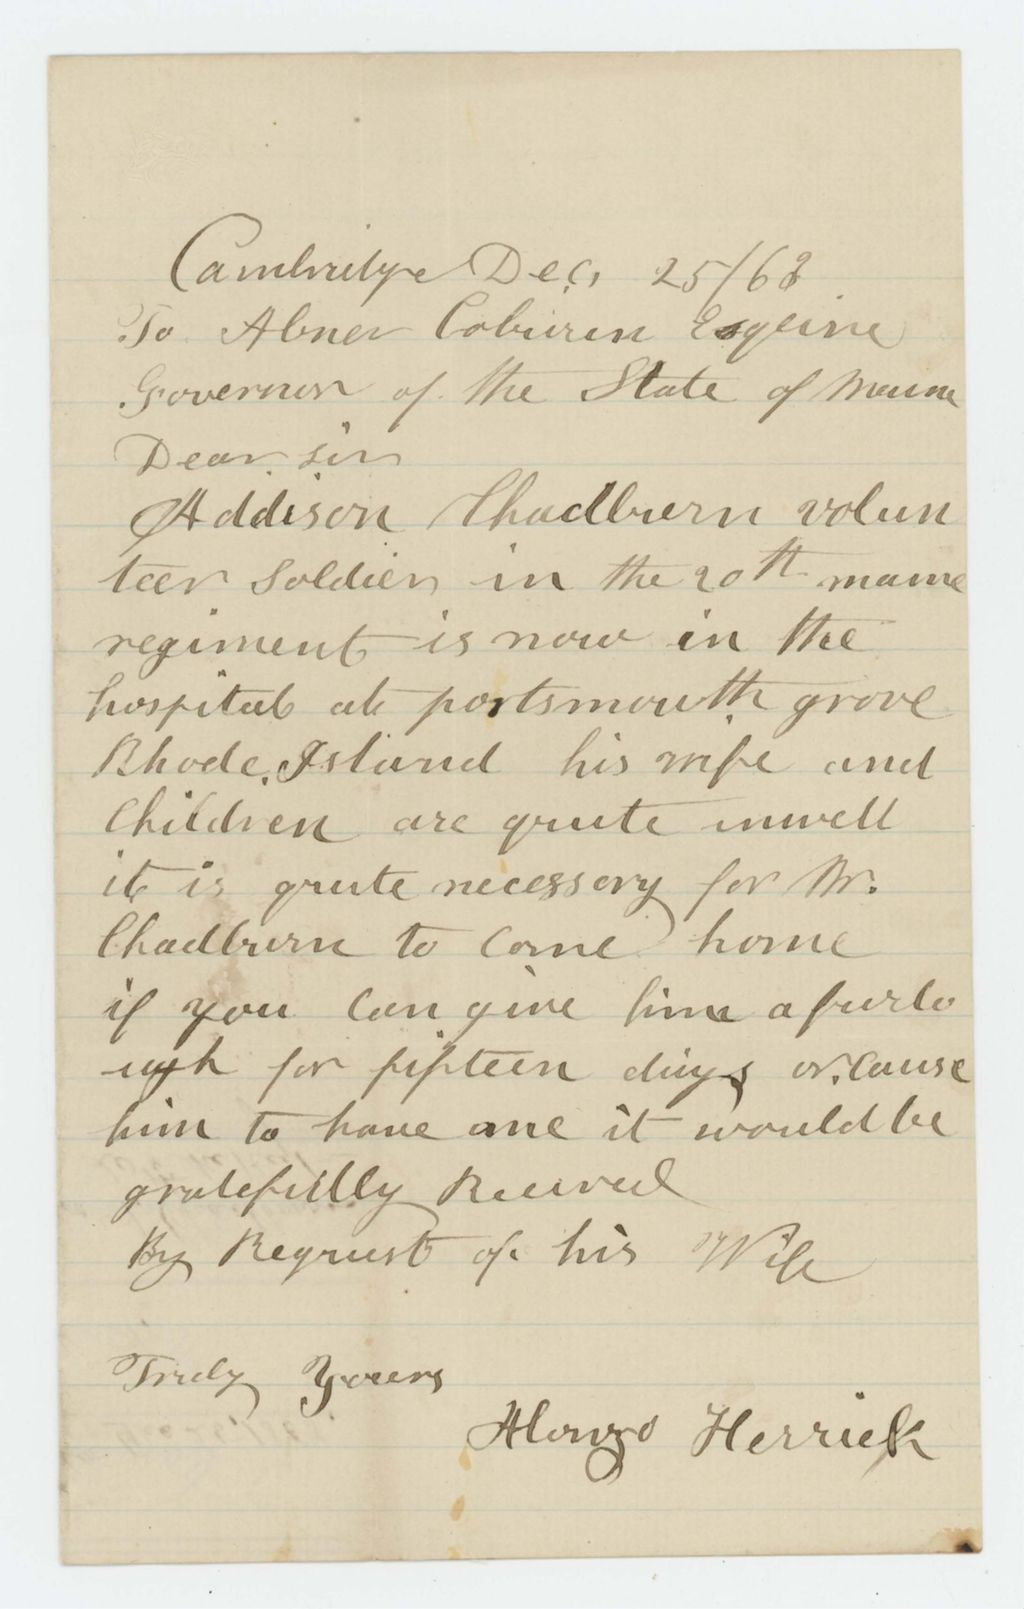 Cambridge Dec, 25/63
To Abner Coburn Esqire
Governor of the State of Maine
Dear sir
Addison Chadburn volun
teer Soldier in the 20th maine
regiment is now in the
hospital at portsmouth grove
Rhode Island his wife and
Children are quite unwell
it is quite necessary for Mr.
Chadburn to Come home
if you Can give him a furlo
ugh for fifteen days or Cause
him to have one it would be
gratefully Received
By Request of his Wife
Truly Yours
Alonzo Herrick